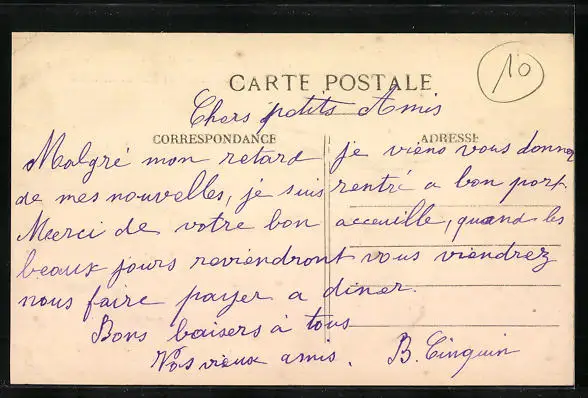 10
CARTE POSTALE
Chers petits Amis
CORRESPONDANCE
ADRESSE
Malgré mon retard je viens vous donner
de mes nouvelles, je suis rentré a bon port
Merci de votre bon acceuille, quand les
beaux jours reviendront vous viendrez
nous faire payer a diner.
Bons baisers à tous
Vos vieux amis. B. Cinquin